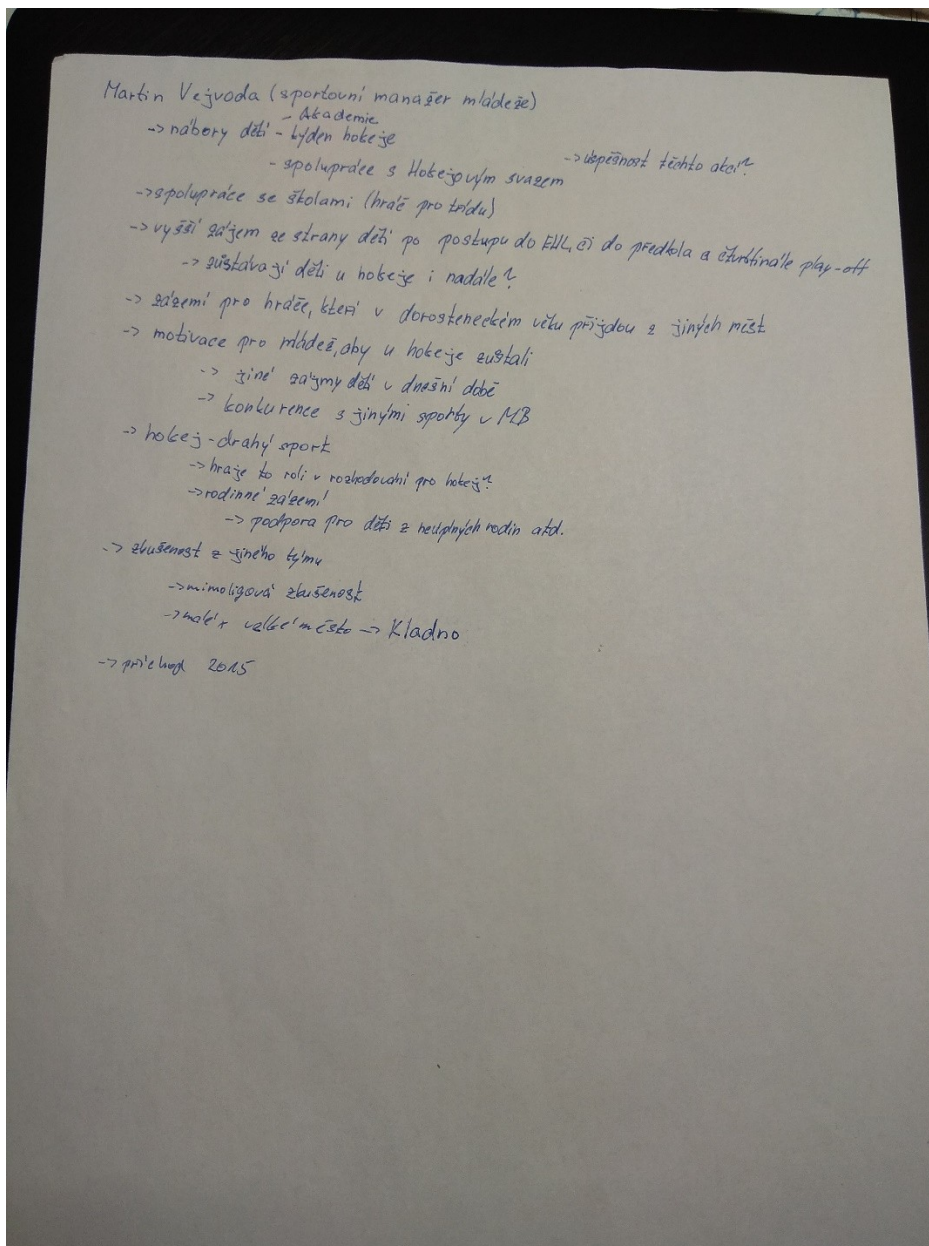 Martin Vejvoda (sportovní manažer mládeže)
- Akademie
-> nábory dětí - týden hokeje
- spolupráce s Hokejovým svazem -> úspěšnost těchto akcí?
-> spolupráce se školami (hráč pro třídu)
-> vyšší zájem ze strany dětí po postupu do EHL, či do předkola a čtvrtfinále play-off
-> zůstávají děti u hokeje i nadále?
-> zázemí pro hráče, kteří v dorosteneckém věku přijdou z jiných měst
-> motivace pro mládež, aby u hokeje zůstali
-> jiné zájmy dětí v dnešní době
-> konkurence s jinými sporty v MB
-> hokej - drahý sport
-> hraje to roli v rozhodování pro hokej?
-> rodinné zázemí
-> podpora pro děti z neúplných rodin atd.
-> zkušenost z jiného týmu
-> mimoligová zkušenost
-> malé x velké město -> Kladno
-> příchod 2015